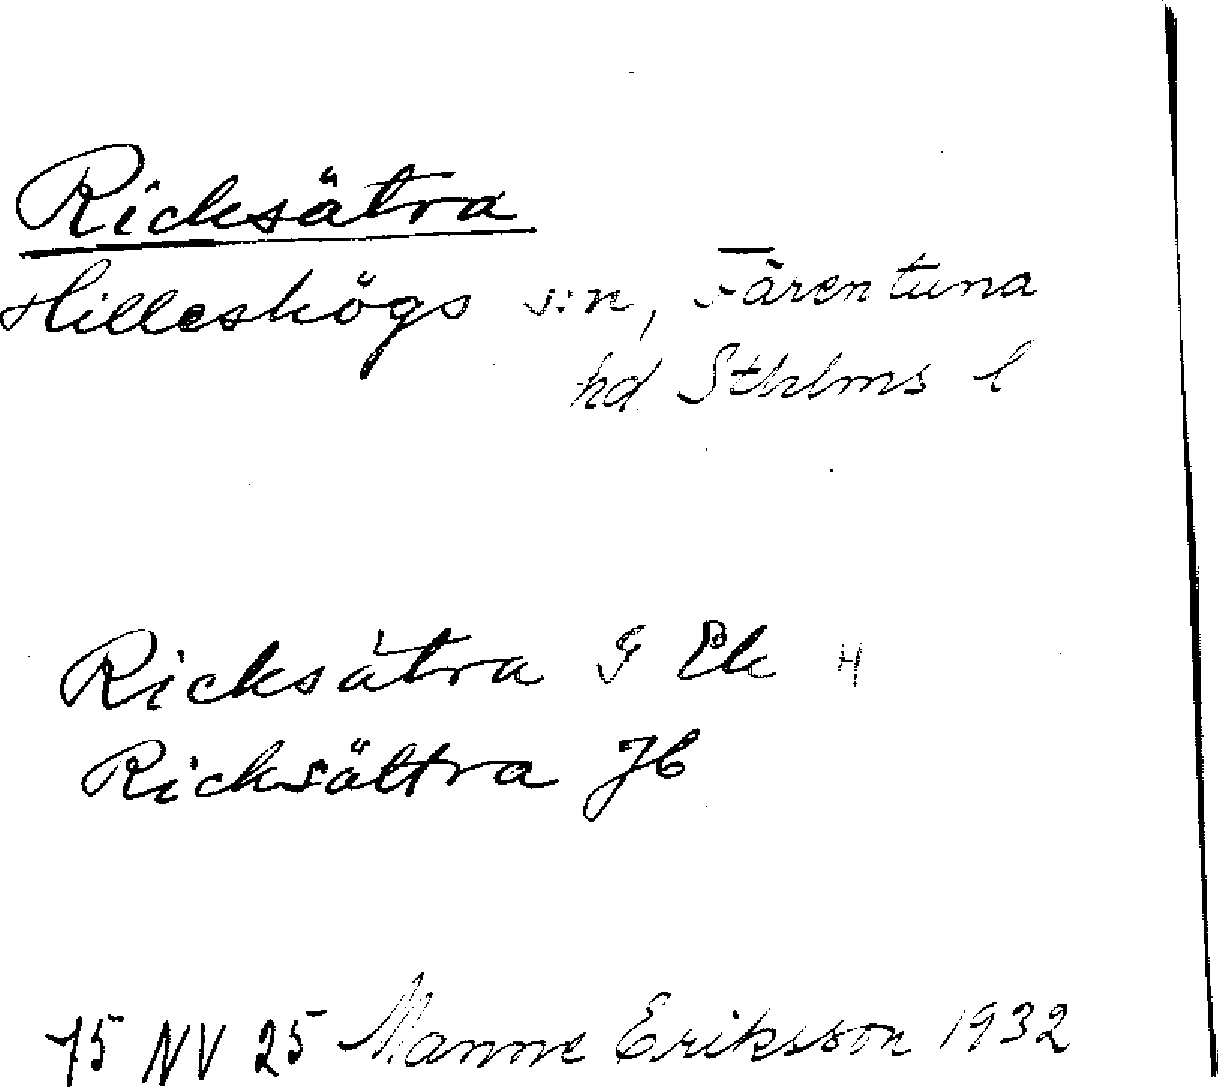 Ricksätra
Hilleshögs s:n, Färentuna
hd Sthlms l
Ricksätra G Ek H
Ricksättra JB
75 NV 25 Manne Eriksson 1932